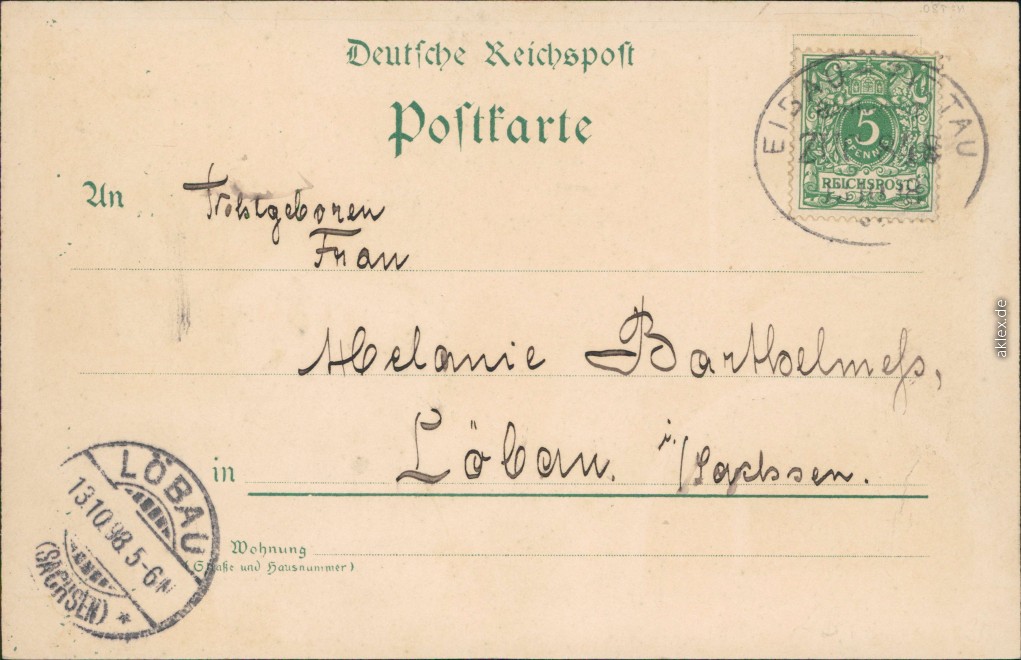 Deutsche Reichspost
Postkarte
5
PFENNIG
REICHSPOST
EIBAU ZITTAU
An Wohlgeboren
Frau
Melanie Barthelmeß,
in Löbau. i/Sachsen.
LÖBAU
13.10.98. 5-6N
(SACHSEN) *
Wohnung
(Straße und Hausnummer)
aklex.de